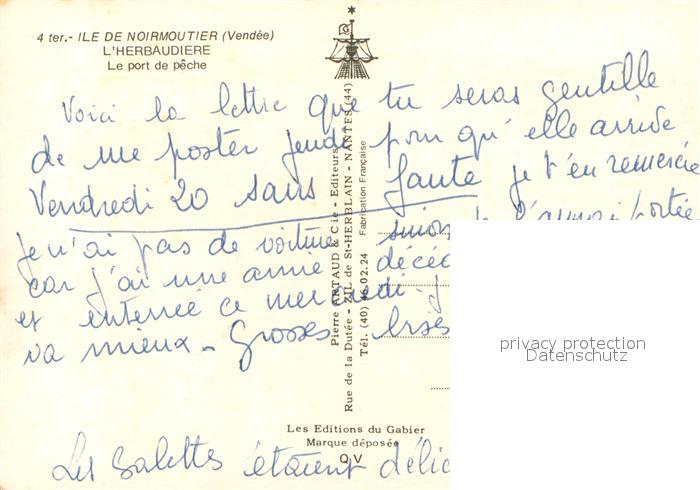 4 ter.- ILE DE NOIRMOUTIER (Vendée)
L'HERBAUDIERE
Le port de pêche
Voici la lettre que tu seras gentille
de me poster jeudi pour qu'elle arrive
Vendredi 20 sans faute je t'en remercie
je n'ai pas de voiture sinon je l'aurai portée
car j'ai une amie décéd
et enterrée ce mercredi. J
va mieux - Grosses bises
Les galettes étaient délic
Pierre ARTAUD & Cie - Editeurs
Rue de la Dutée - ZIL de St-HERBLAIN - NANTES (44)
Tél. (40) 46.02.24 Fabrication Française
Les Editions du Gabier
Marque déposée
QV
privacy protection
Datenschutz